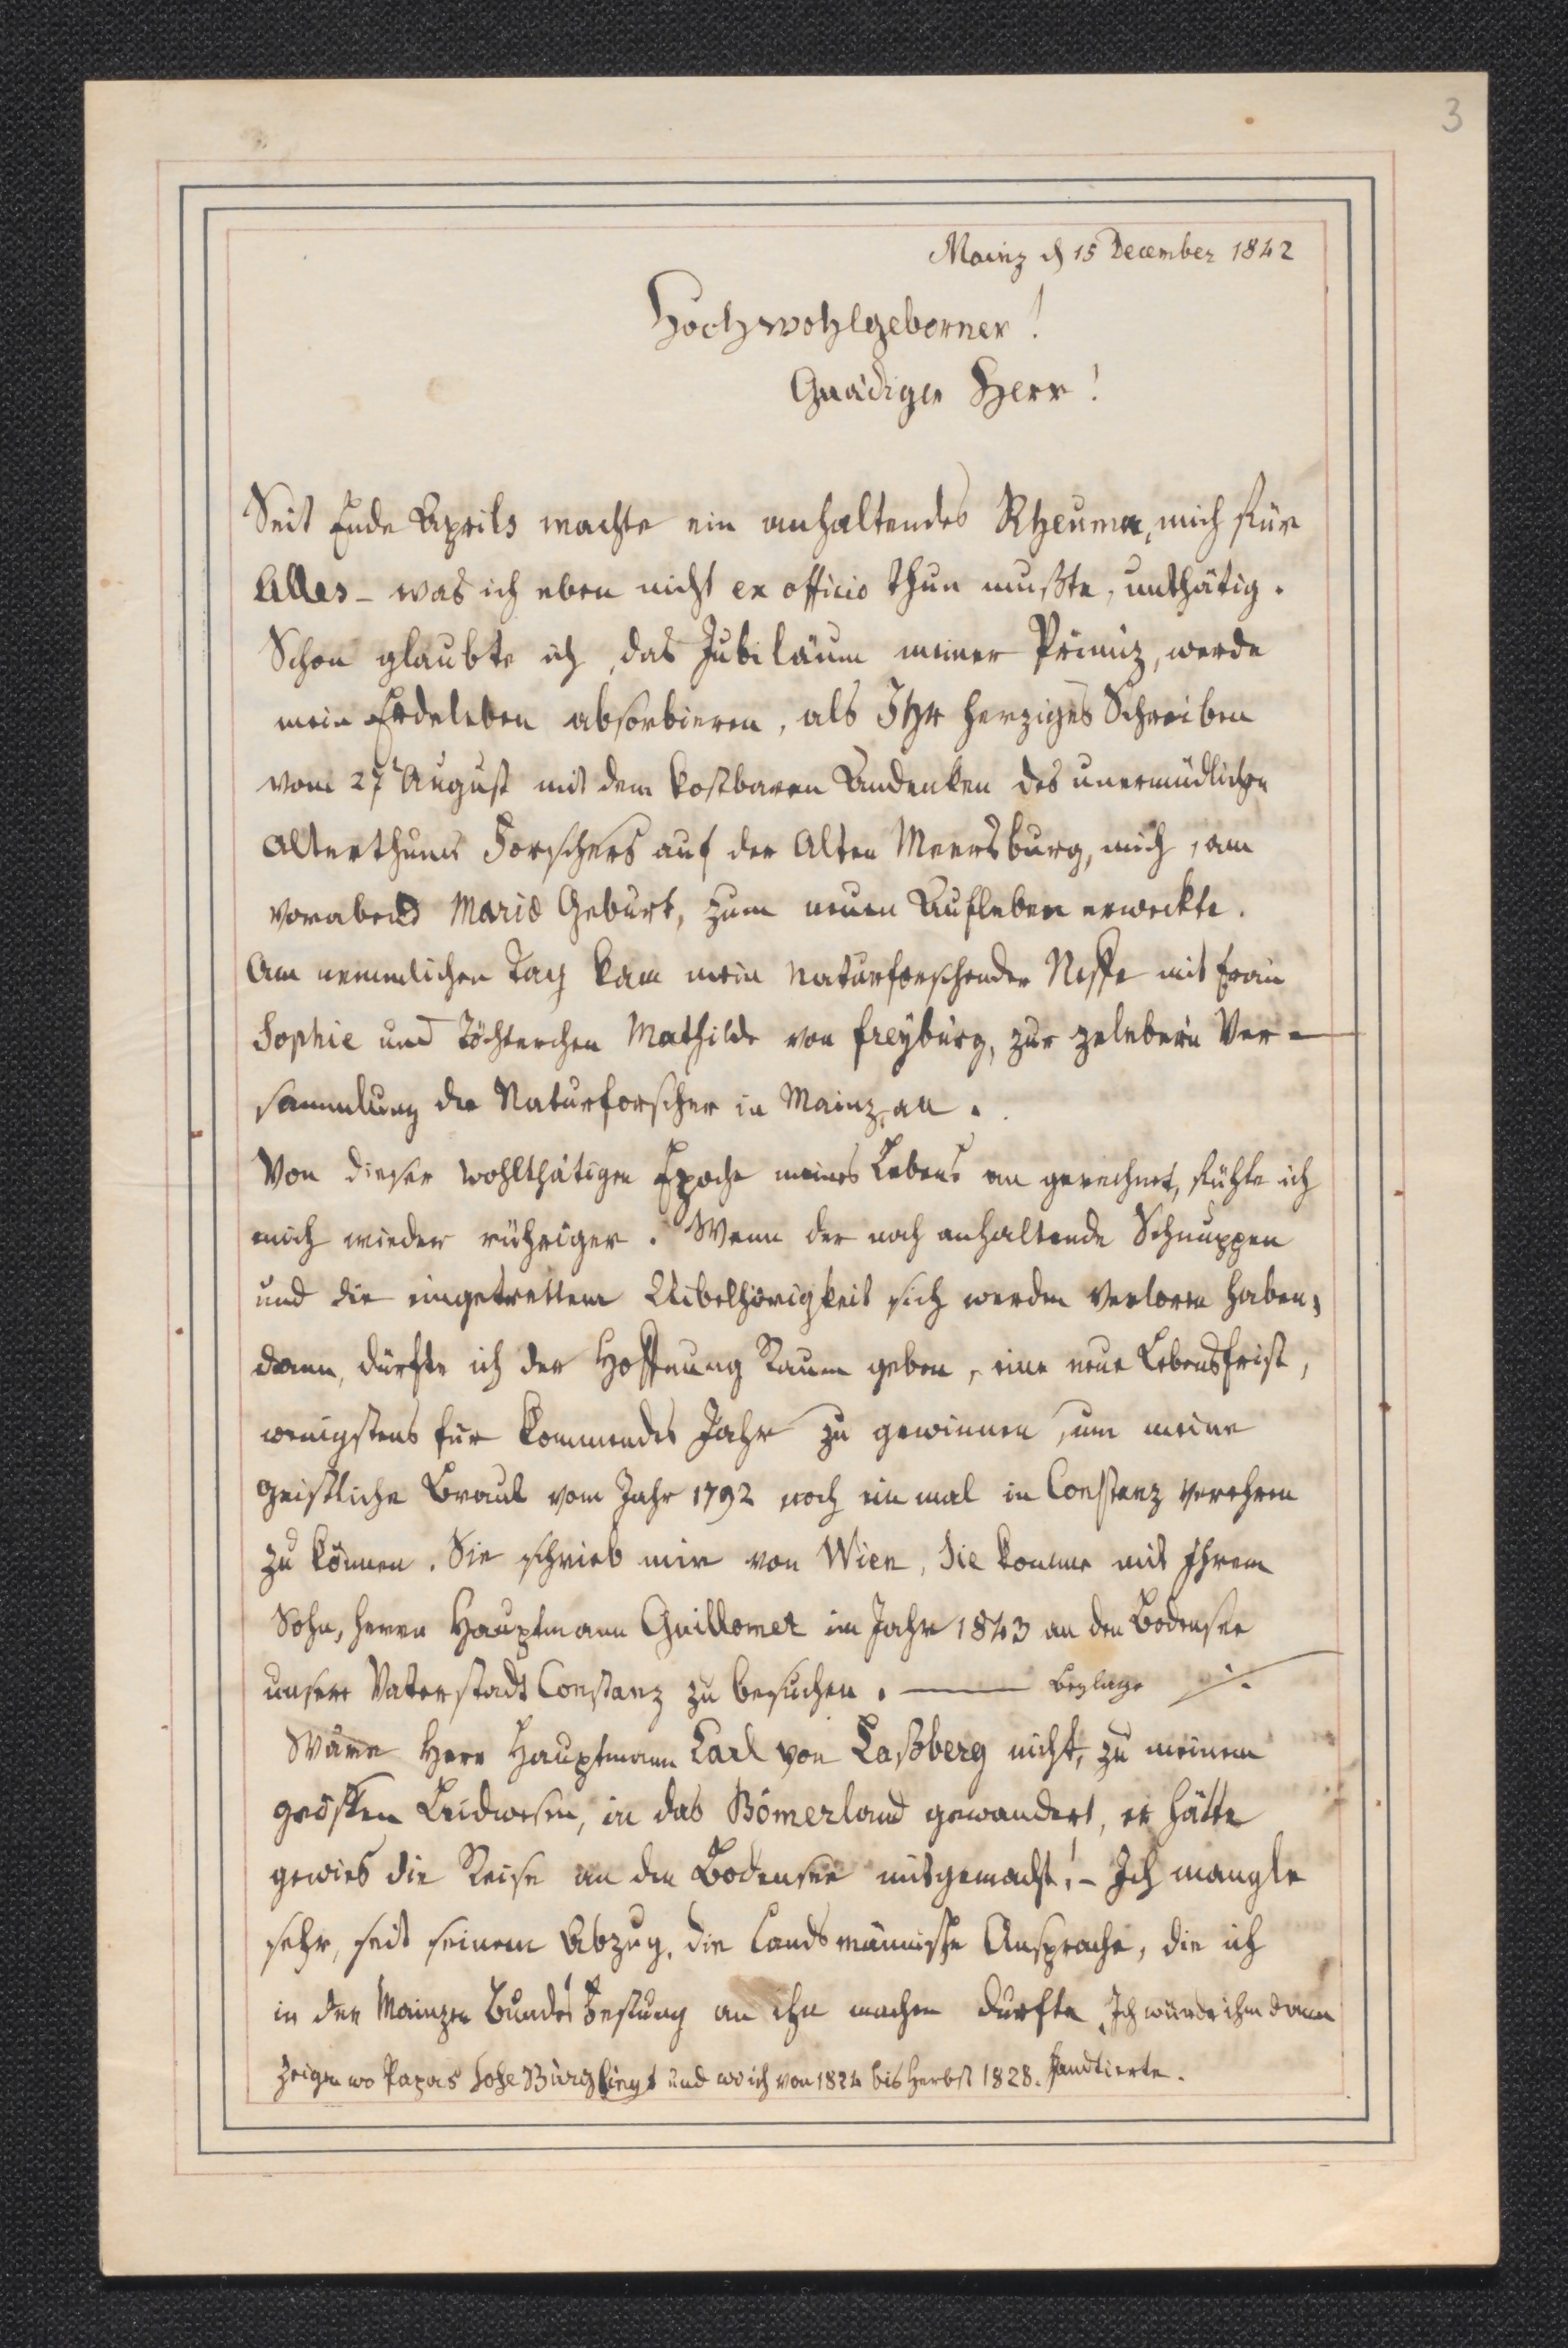 3
Mainz d 15 December 1842
Hochwohlgeborner!
Gnädiger Herr!
Seit Ende Aprils machte ein anhaltendes Rheuma, mich für
Alles – was ich eben nicht ex officio thun mußte, unthätig.
Schon glaubte ich, das Jubiläum meiner Primiz, werde
mein Erdeleben absorbieren, als Ihr herziges Schreiben
vom 27t August mit dem kostbaren Andenken des unermüdlichen
Alterthums Forschers auf der Alten Meersburg, mich, am
Vorabend Mariä Geburt, zum neuen Aufleben erweckte.
Am nemmlichen Tag kam mein Naturforschender Neffe mit Frau
Sophie und Töchterchen Mathilde von Freyburg, zur zelebern Ver-
sammlung der Naturforscher in Mainz, an.
Von dieser wohlthätigen Epoche meines Lebens an gerechnet, fühle ich
mich wieder rühriger. Wenn der noch anhaltende Schnuppen
und die eingetrettene Uibelhörigkeit sich werden verloren haben,
dann, dürfte ich der Hoffnung Raum geben, eine neue Lebensfrist,
wenigstens für kommendes Jahr zu gewinnen, um meine
geistliche Braut vom Jahr 1792 noch ein mal in Constanz verehren
zu können. Sie schrieb mir von Wien, Sie komme mit Ihrem
Sohn, Herrn Hauptmann Guillomet im Jahr 1843 an den Bodensee
unsere Vaterstadt Constanz zu besuchen. — Beylage ./.
Wäre Herr Hauptmann Carl von Laßberg nicht, zu meinem
grösten Leidwesen, in das Bömerland gewandert, er hätte
gewies die Reise an den Bodensee mitgemacht! – Ich mangle
sehr, seit seinem Abzug, die Landsmännische Ansprache, die ich
in der Mainzer Bundes Festung an ihn machen durfte. Ich würde ihm dann
zeigen wo Papas hohe Burg liegt und wo ich von 1824 bis Herbst 1828. handtierte.